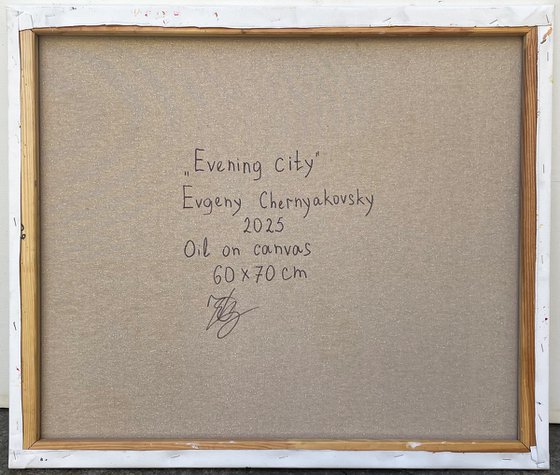 „Evening city"
Evgeny Chernyakovsky
2025
Oil on canvas
60 x 70 cm